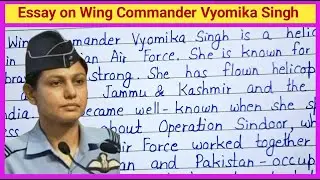 Essay on Wing Commander Vyomika Singh
Wing Commander Vyomika Singh is a helic
ian Air Force. She is known for
bra strong. She has flown helicop
Jammu & Kashmir and the
ndia. became well-known when she s
about Operation Sindoor, wh
ir Force worked together
an and Pakistan-occup